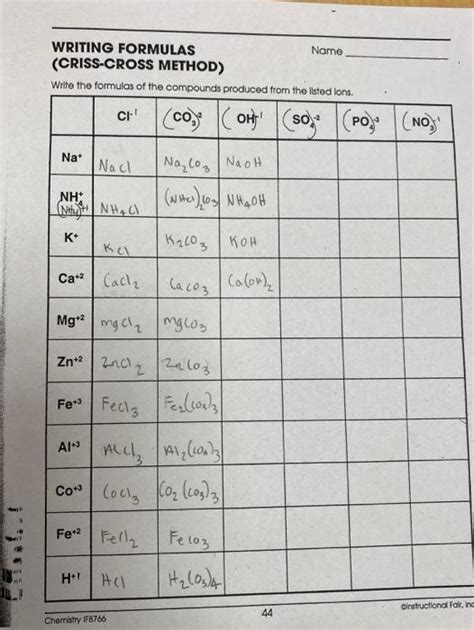 WRITING FORMULAS Name
(CRISS-CROSS METHOD)
Write the formulas of the compounds produced from the listed ions.
Cl⁻¹ (CO₃)⁻² (OH)⁻¹ (SO₄)⁻² (PO₄)⁻³ (NO₃)⁻¹
Na⁺ NaCl Na₂CO₃ NaOH
NH₄⁺ NH₄Cl (NH₄)₂CO₃ NH₄OH
(NH₄)⁺¹
K⁺ KCl K₂CO₃ KOH
Ca⁺² CaCl₂ CaCO₃ Ca(OH)₂
Mg⁺² mgCl₂ mgCO₃
Zn⁺² ZnCl₂ ZnCO₃
Fe⁺³ FeCl₃ Fe₂(CO₃)₃
Al⁺³ AlCl₃ Al₂(CO₃)₃
Co⁺³ CoCl₃ CO₂(CO₃)₃
Fe⁺² FeCl₂ FeCO₃
H⁺¹ HCl
Chemistry IF8766 44 ©Instructional Fair, Inc